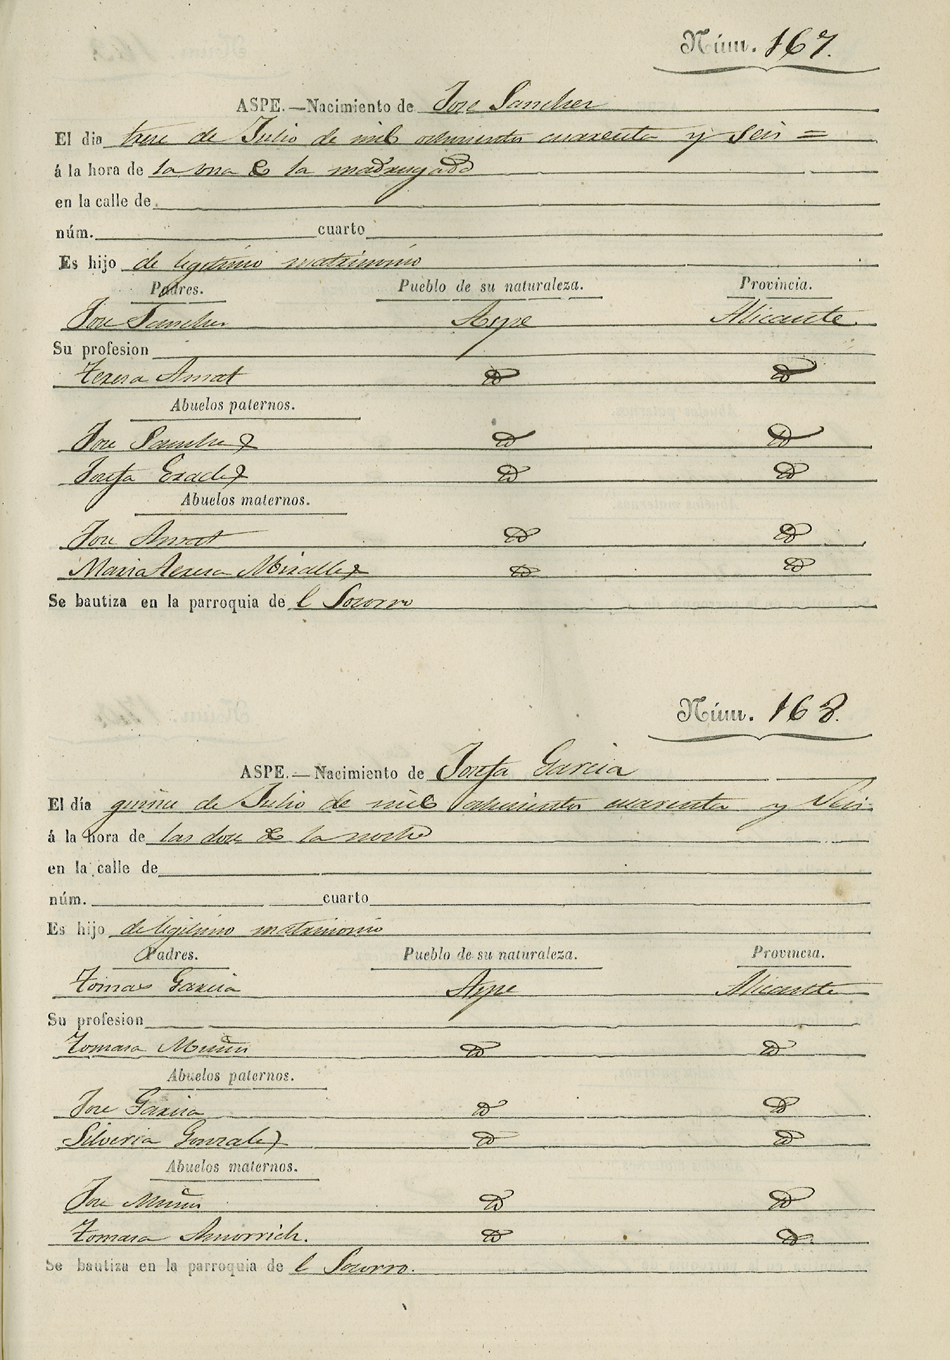 Núm. 167.
ASPE.—Nacimiento de Jose Sanchez
El dia trese de Julio de mil ochocientos cuarenta y seis =
á la hora de la una de la madrugada
en la calle de
núm. cuarto
Es hijo de legitimo matrimonio
Padres. Pueblo de su naturaleza. Provincia.
Jose Sanchez Aspe Alicante
Su profesion
Teresa Amat id id
Abuelos paternos.
Jose Sanchez id id
Josefa id id
Abuelos maternos.
Jose Amat id id
Maria Teresa Miralles id id
Se bautiza en la parroquia de l Socorro
Núm. 168.
ASPE.—Nacimiento de Josefa Garcia
El día quinse de Julio de mil ochocientos cuarenta y Seis
á la hora de las doce de la noche
en la calle de
núm. cuarto
Es hijo de legitimo matrimonio
Padres. Pueblo de su naturaleza. Provincia.
Tomas Garcia Aspe Alicante
Su profesion
Tomasa Muños id id
Abuelos paternos.
Jose Garcia id id
Silveria Gonzalez id id
Abuelos maternos.
Jose Muños id id
Tomasa Amorrich. id id
Se bautiza en la parroquia de l Socorro.